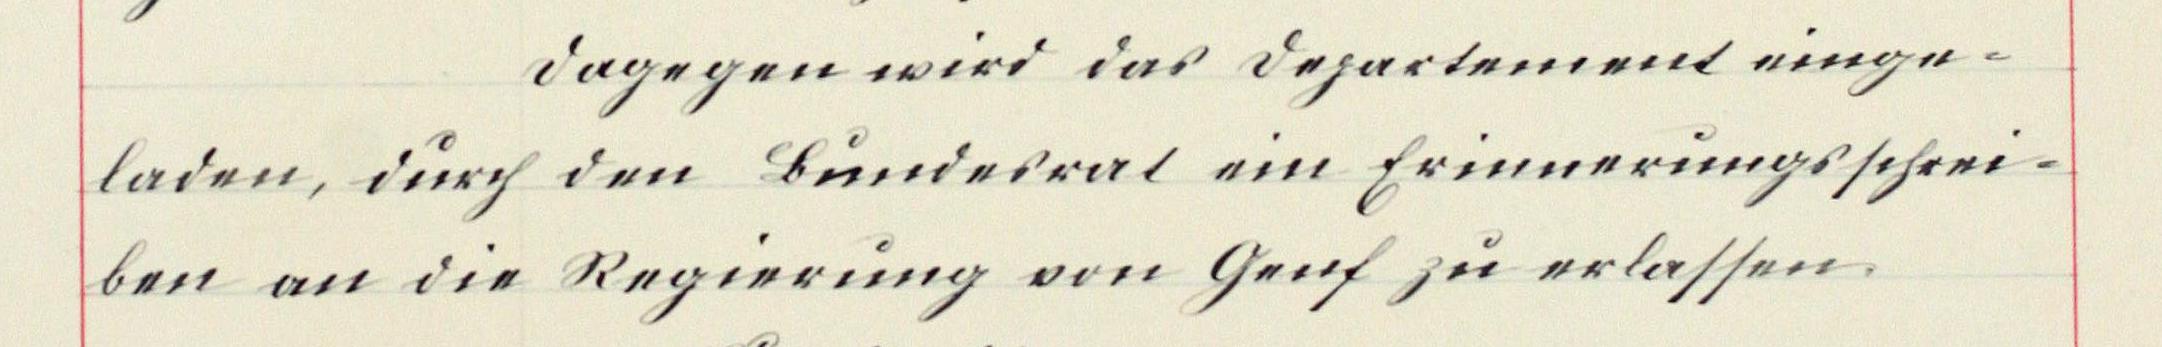 Dagegen wird das Departement einge-
laden, durch den Bundesrat ein Erinnerungsschrei-
ben an die Regierung von Genf zu erlassen.